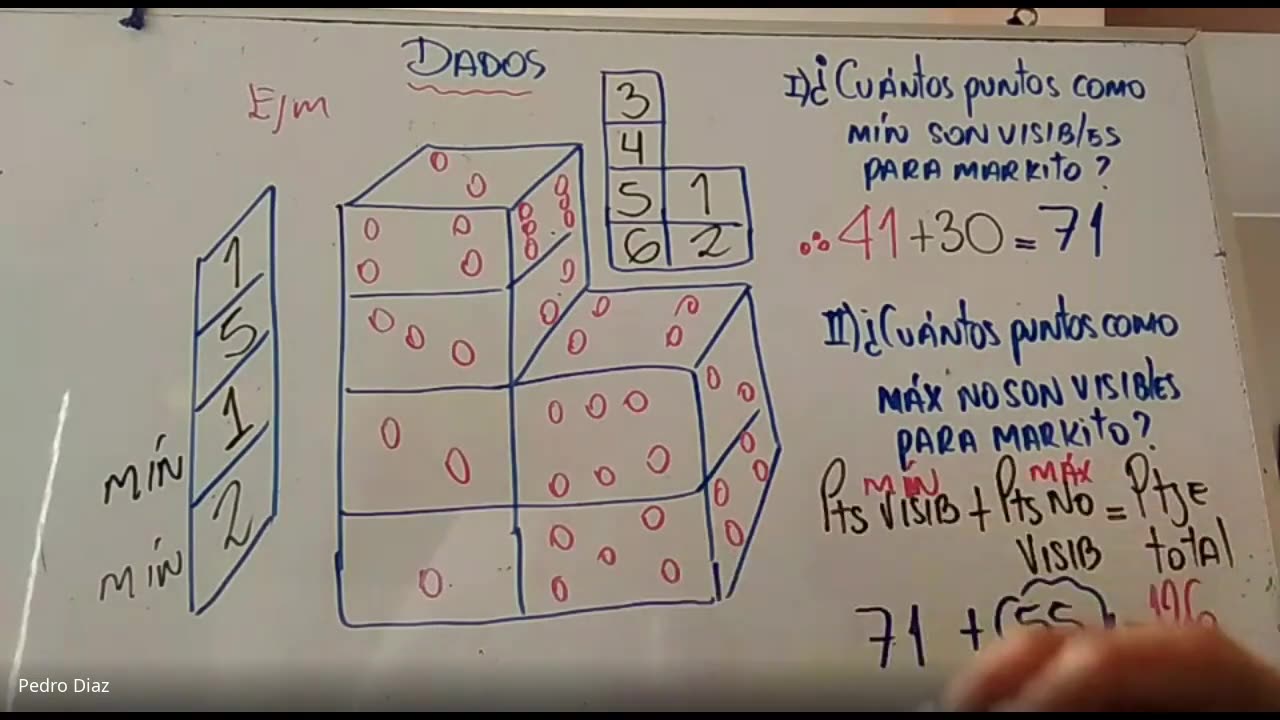 DADOS
E/m
3
4
5 1
6 2
1
5
1
2
MÍN
MÍN
I) ¿CUÁNTOS PUNTOS COMO
MÍN SON VISIBLES
PARA MARKITO?
∴ 41 + 30 = 71
II) ¿CUÁNTOS PUNTOS COMO
MÁX NO SON VISIBLES
PARA MARKITO?
MÍN MÁX
Pts VISIB + Pts NO = PtjE
VISIB TOTAL
71 + (55)
Pedro Diaz